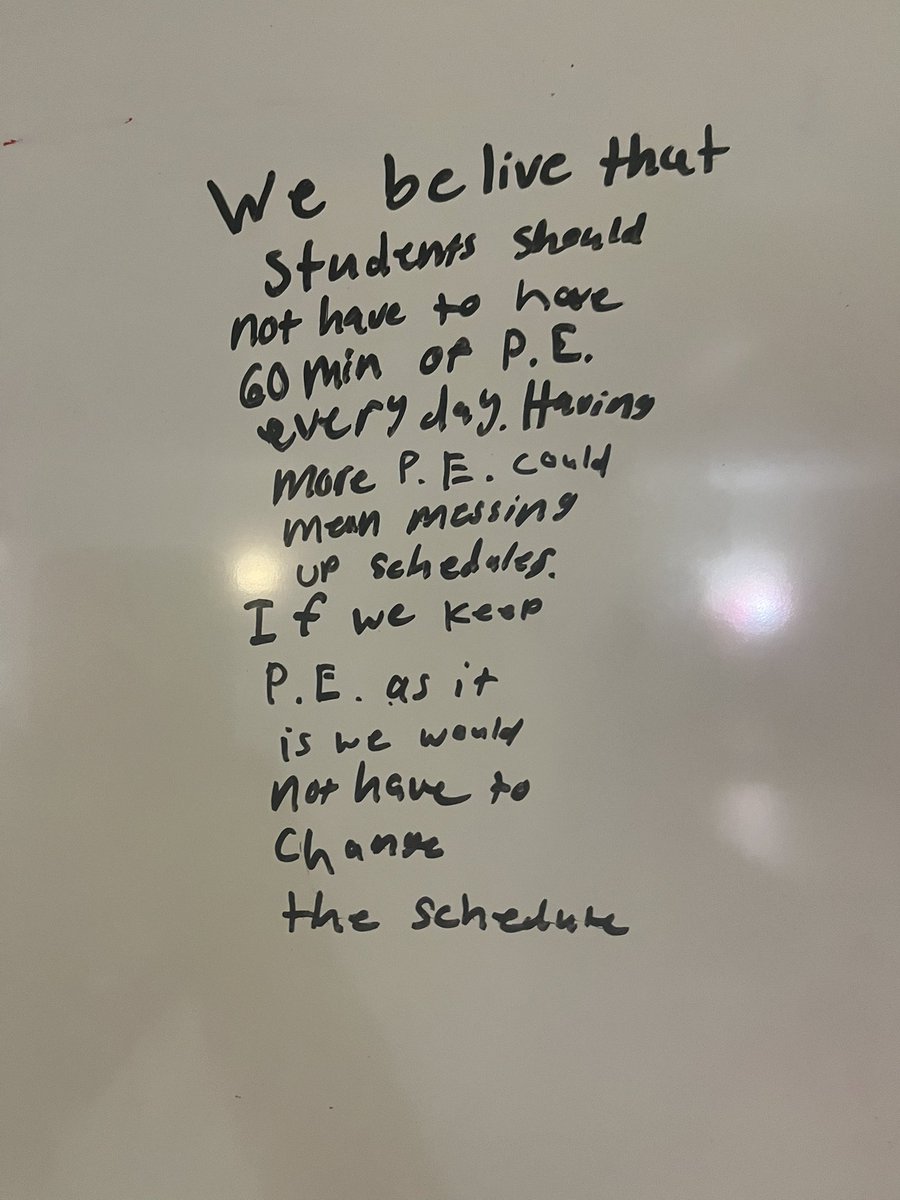 We belive that
students should
not have to have
60 min of P.E.
every day. Having
more P.E. could
mean messing
up schedules.
If we keep
P.E. as it
is we would
not have to
change
the schedule